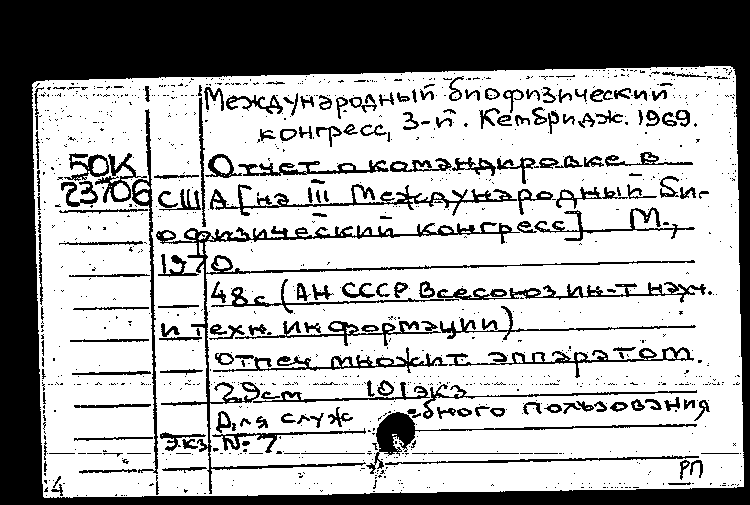 Международный биофизический
конгресс, 3-й. Кембридж. 1969.
50К
23706
Отчет о командировке в
США [на III Международный би-
офизический конгресс]. М.,
1970.
48с (АН СССР. Всесоюз ин-т науч.
и техн. информации)
Отпеч. множит. аппаратом.
29см 101экз
Для служебного пользования
Экз. № 7.
РП
4